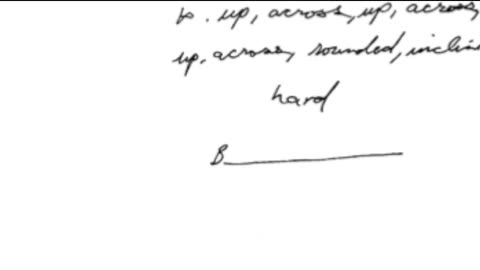 up, across, up, across
up, across, sounded, inclin
hard
B